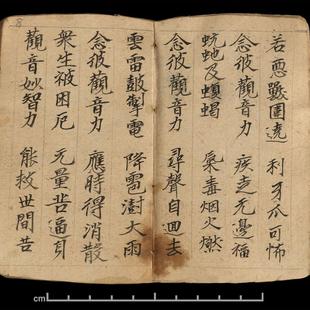 若惡獸圍遶 利牙爪可怖
念彼觀音力 疾走无邊福
蚖虵及蝮蝎 氣毒烟火燃
念彼觀音力 尋聲自迴去
雲雷鼓掣電 降雹澍大雨
念彼觀音力 應時得消散
衆生被困厄 无量苦逼身
觀音妙智力 能救世間苦
8
cm